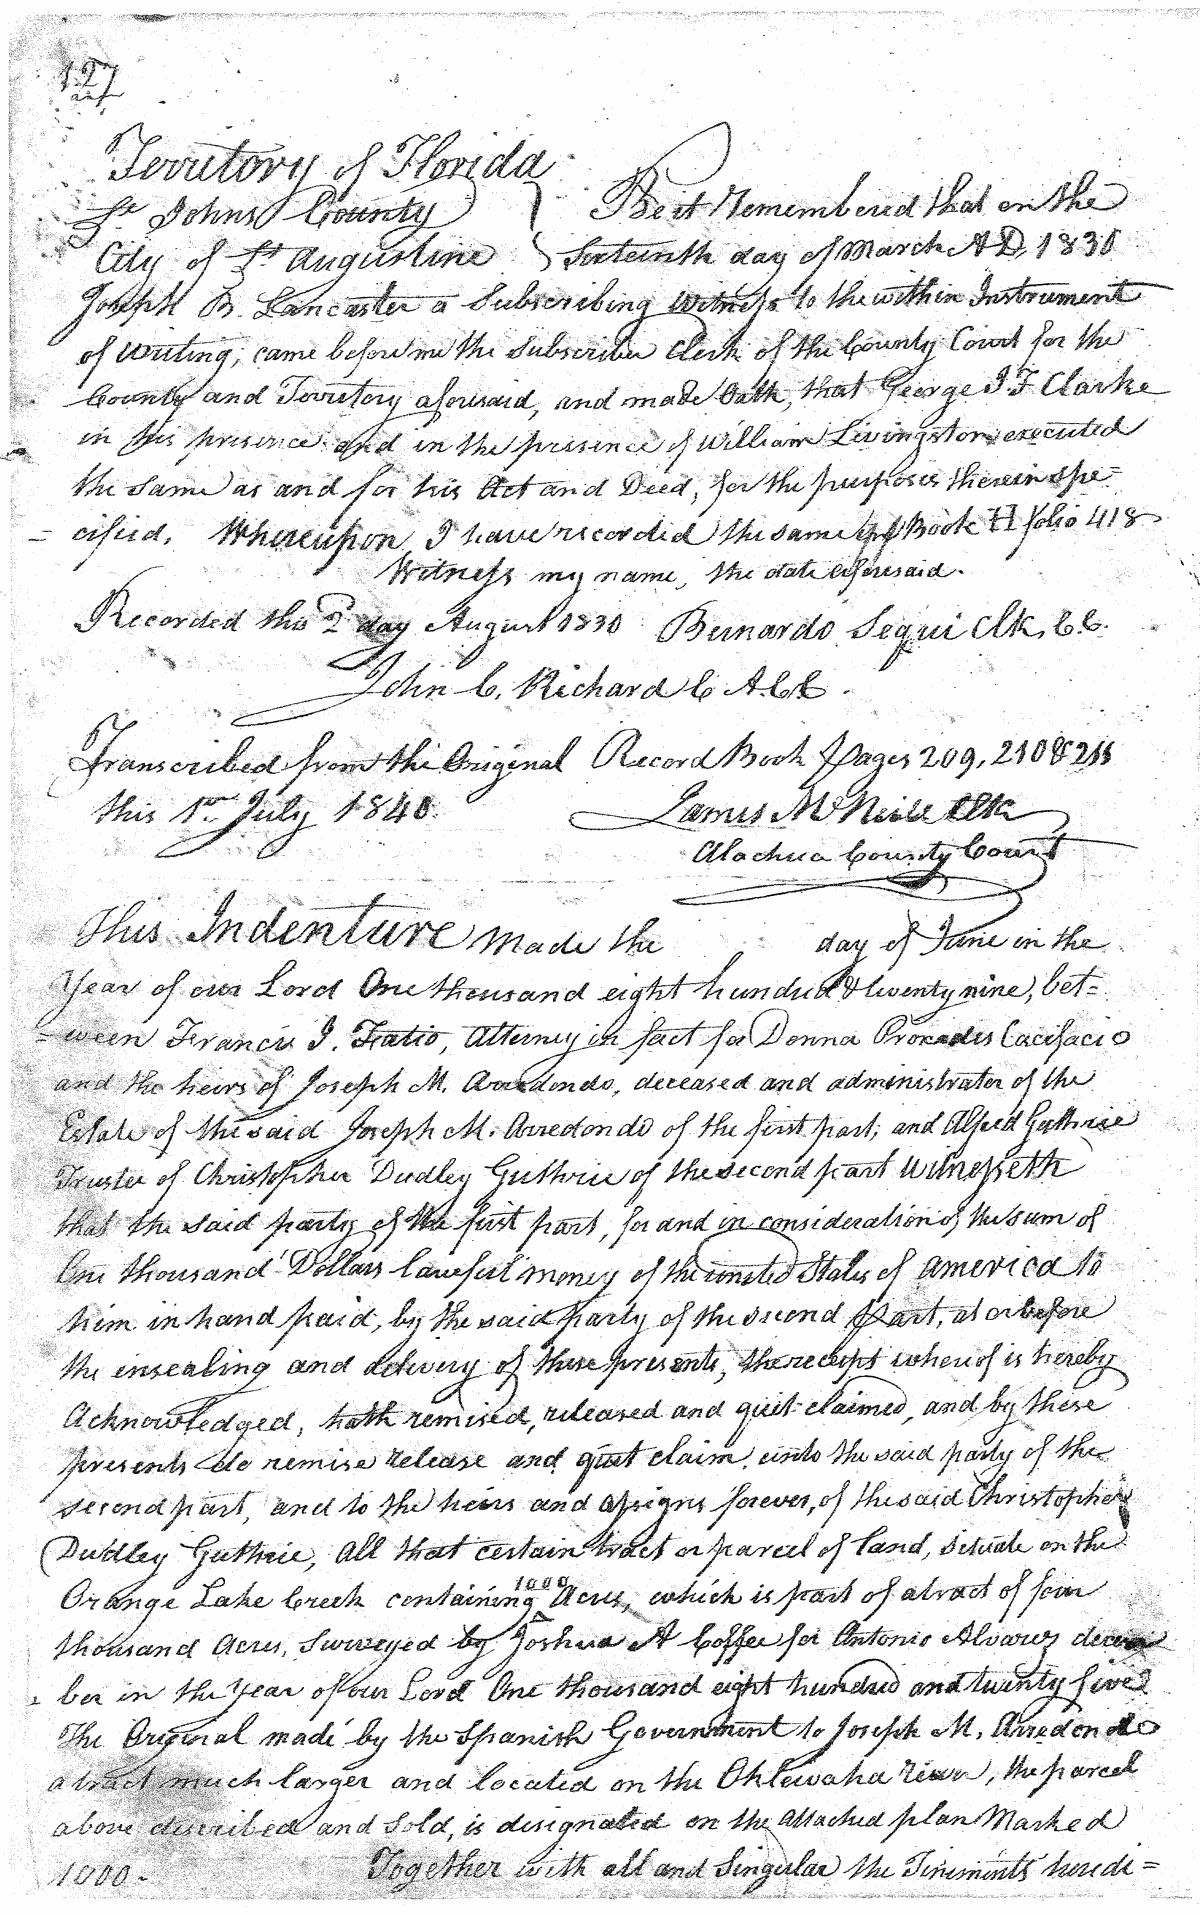 127
Territory of Florida
St Johns County } Be it Remembered that on the
City of St Augustine } Sixteenth day of March A D, 1830
Joseph B. Lancaster a Subscribing Witness to the within Instrument
of Writing, came before me the Subscriber Clerk of the County Court for the
County and Territory aforesaid, and made Oath, that George J. F. Clarke
in his presence and in the presence of William Livingston executed
the same as and for his Act and Deed, for the purposes therein spe=
=cified. Whereupon I have recorded the same in Book H folio 418
Witness my name, the date aforesaid.
Recorded this 2d day August 1830 Bernardo Segui Clk, C.C.
John C. Richard C A.C.C.
Transcribed from the Original Record Book Pages 209, 210 & 211
this 1st July 1840. James McNeill Clk
Alachua County Court
This Indenture made the day of June in the
Year of our Lord One thousand eight hundred & twenty nine, bet=
=ween Francis J. Fatio, Attorney in fact for Donna Procades Cacifacio
and the heirs of Joseph M. Arredondo, deceased and administrator of the
Estate of the said Joseph M. Arredondo of the first part; and Alfred Guthrie
Trustee of Christopher Dudley Guthrie of the second part Witnesseth
that the said party of the first part, for and in consideration of the sum of
One thousand Dollars lawfull money of the united States of america to
him in hand paid, by the said party of the second Part, at or before
the insealing and delivery of these presents, the receipt whereof is hereby
Acknowledged, hath remised, released and quit claimed, and by these
presents do remise release and quit claim unto the said party of the
second part, and to the heirs and assigns forever, of the said Christopher
Dudley Guthrie, All that certain tract or parcel of land, situate on the
Orange Lake Creek containing 1000 Acres, which is part of a tract of four
thousand Acres, Surveyed by Joshua A Coffee for Antonio Alvarez decem
=ber in the Year of our Lord One thousand eight hundred and twenty five
The Original made by the Spanish Government to Joseph M. Arredondo
a tract much larger and located on the Oklewaha River, the parcel
above described and sold, is designated on the attached plan Marked
1000. Together with all and Singular the Tinements heredi=